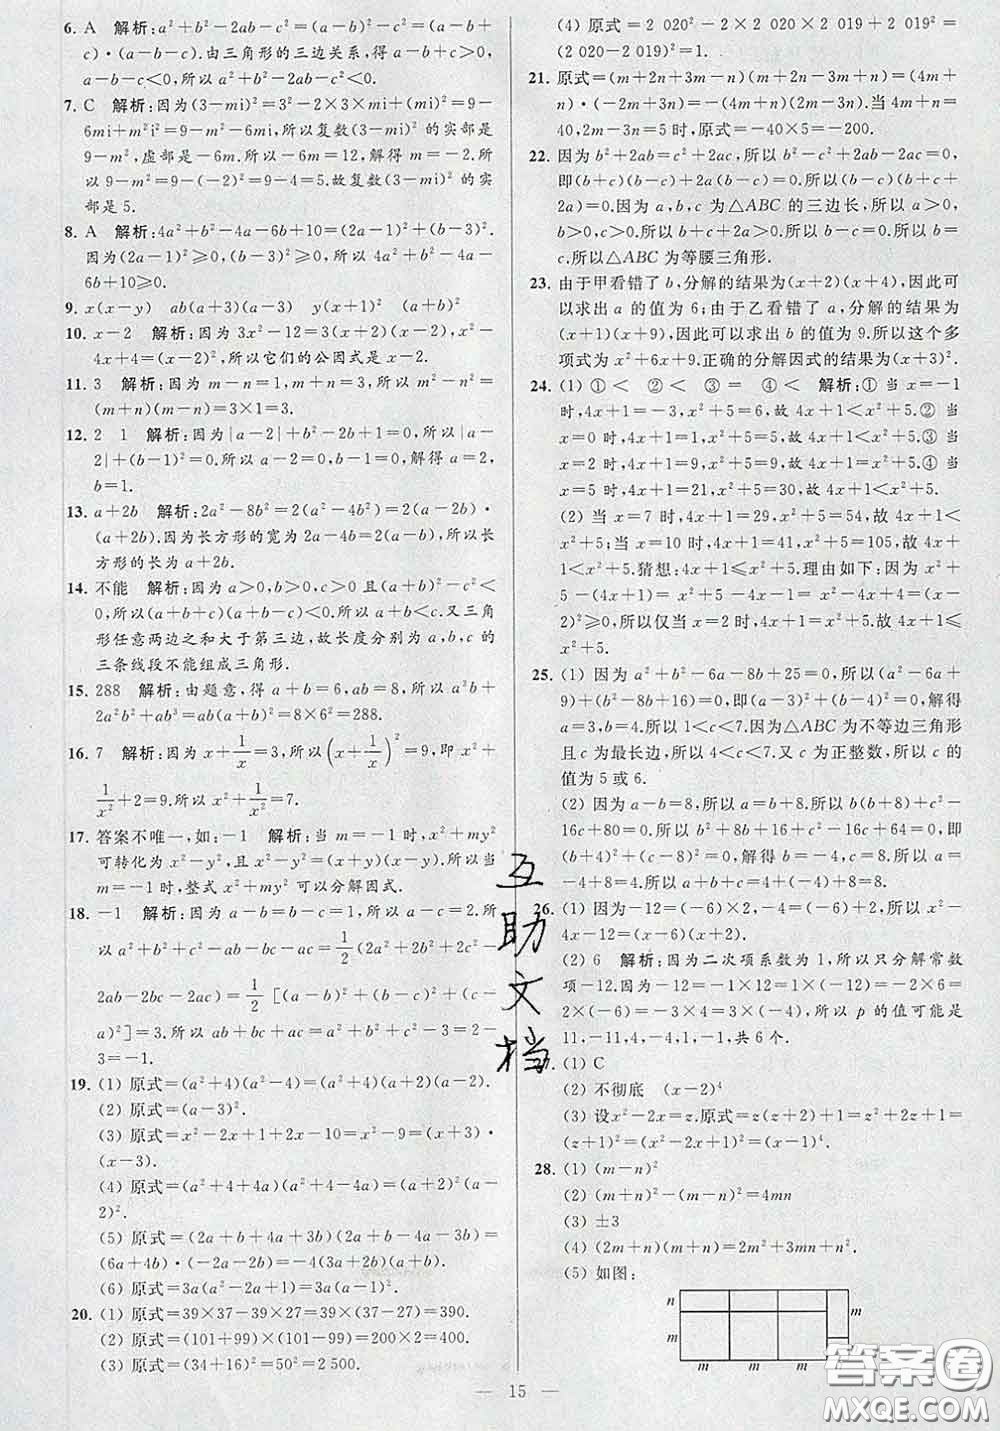 6. A 解析:a²+b²-2ab-c²=(a-b)²-c²=(a-b+
c)·(a-b-c).由三角形的三边关系,得a-b+c>0,
a-b-c<0,所以a²+b²-2ab-c²<0.
7. C 解析:因为(3-mi)²=3²-2×3×mi+(mi)²=9-
6mi+m²i²=9-m²-6mi,所以复数(3-mi)²的实部是
9-m²,虚部是-6m.所以-6m=12,解得m=-2.所
以9-m²=9-(-2)²=9-4=5.故复数(3-mi)²的实
部是5.
8. A 解析:4a²+b²-4a-6b+10=(2a-1)²+(b-3)².
因为(2a-1)²≥0,(b-3)²≥0,所以4a²+b²-4a-
6b+10≥0.
9. x(x-y) ab(a+3)(a-3) y(x+1)² (a+b)²
10. x-2 解析:因为3x²-12=3(x+2)(x-2),x²-
4x+4=(x-2)²,所以它们的公因式是x-2.
11. 3 解析:因为m-n=1,m+n=3,所以m²-n²=
(m+n)(m-n)=3×1=3.
12. 2 1 解析:因为|a-2|+b²-2b+1=0,所以|a-
2|+(b-1)²=0.所以a-2=0,b-1=0,解得a=2,
b=1.
13. a+2b 解析:2a²-8b²=2(a²-4b²)=2(a-2b)·
(a+2b).因为长方形的宽为2a-4b=2(a-b),所以长
方形的长为a+2b.
14. 不能 解析:因为a>0,b>0,c>0且(a+b)²-c²<
0,所以(a+b+c)(a+b-c)<0.所以a+b<c.又三角
形任意两边之和大于第三边,故长度分别为a,b,c的
三条线段不能组成三角形.
15. 288 解析:由题意,得a+b=6,ab=8,所以a³b+
2a²b²+ab³=ab(a+b)²=8×6²=288.
16. 7 解析:因为x+1/x=3,所以(x+1/x)²=9,即x²+
1/x²+2=9.所以x²+1/x²=7.
17. 答案不唯一,如:-1 解析:当m=-1时,x²+my²
可转化为x²-y²,且x²-y²=(x+y)(x-y).所以当
m=-1时,整式x²+my²可以分解因式.
18. -1 解析:因为a-b=b-c=1,所以a-c=2.所
以a²+b²+c²-ab-bc-ac=1/2(2a²+2b²+2c²-
2ab-2bc-2ac)=1/2[(a-b)²+(b-c)²+(c-
a)²]=3.所以ab+bc+ac=a²+b²+c²-3=2-
3=-1.
19. (1) 原式=(a²+4)(a²-4)=(a²+4)(a+2)(a-2).
(2) 原式=(a-3)².
(3) 原式=x²-2x+1+2x-10=x²-9=(x+3)·
(x-3).
(4) 原式=(a²+4+4a)(a²+4-4a)=(a+2)²(a-
2)².
(5) 原式=(2a+b+4a+3b)(2a+b-4a-3b)=
(6a+4b)·(-2a-2b)=-4(3a+2b)(a+b).
(6) 原式=3a(a²-2a+1)=3a(a-1)².
20. (1) 原式=39×37-39×27=39×(37-27)=390.
(2) 原式=(101+99)×(101-99)=200×2=400.
(3) 原式=(34+16)²=50²=2 500.
(4) 原式=2 020²-2×2 020×2 019+2 019²=
(2 020-2 019)²=1.
21. 原式=(m+2n+3m-n)(m+2n-3m+n)=(4m+
n)·(-2m+3n)=-(4m+n)(2m-3n).当4m+n=
40,2m-3n=5时,原式=-40×5=-200.
22. 因为b²+2ab=c²+2ac,所以b²-c²+2ab-2ac=0,
即(b+c)(b-c)+2a(b-c)=0.所以(b-c)(b+c+
2a)=0.因为a,b,c为△ABC的三边长,所以a>0,
b>0,c>0.所以b+c+2a>0.所以b-c=0.所以
b=c.所以△ABC为等腰三角形.
23. 由于甲看错了b,分解的结果为(x+2)(x+4),因此可
以求出a的值为6;由于乙看错了a,分解的结果为
(x+1)(x+9),因此可以求出b的值为9.所以这个多
项式为x²+6x+9.正确的分解因式的结果为(x+3)².
24. (1) ①< ②< ③= ④< 解析:①当x=-1
时,4x+1=-3,x²+5=6,故4x+1<x²+5.②当
x=0时,4x+1=1,x²+5=5,故4x+1<x²+5.③当
x=2时,4x+1=9,x²+5=9,故4x+1=x²+5.④当
x=5时,4x+1=21,x²+5=30,故4x+1<x²+5.
(2) 当x=7时,4x+1=29,x²+5=54,故4x+1<
x²+5;当x=10时,4x+1=41,x²+5=105,故4x+
1<x²+5.猜想:4x+1≤x²+5.理由如下:因为x²+
5-(4x+1)=x²+5-4x-1=x²-4x+4=(x-
2)²≥0.所以仅当x=2时,4x+1=x²+5.故4x+1≤
x²+5.
25. (1) 因为a²+b²-6a-8b+25=0,所以(a²-6a+
9)+(b²-8b+16)=0,即(a-3)²+(b-4)²=0,解得
a=3,b=4.所以1<c<7.因为△ABC为不等边三角形
且c为最长边,所以4<c<7.又c为正整数,所以c的
值为5或6.
(2) 因为a-b=8,所以a=b+8.所以b(b+8)+c²-
16c+80=0.所以b²+8b+16+c²-16c+64=0,即
(b+4)²+(c-8)²=0,解得b=-4,c=8.所以a=
-4+8=4.所以a+b+c=4-4+8=8.
26. (1) 因为-12=(-6)×2,-4=(-6)+2,所以x²-
4x-12=(x-6)(x+2).
(2) 6 解析:因为二次项系数为1,所以只分解常数
项-12,因为-12=-1×12=1×(-12)=-2×6=
2×(-6)=-3×4=3×(-4),所以p的值可能是
11,-11,4,-4,1,-1,共6个.
(1) C
(2) 不彻底 (x-2)⁴
(3) 设x²-2x=z.原式=z(z+2)+1=z²+2z+1=
(z+1)²=(x²-2x+1)²=(x-1)⁴.
28. (1) (m-n)²
(2) (m+n)²-(m-n)²=4mn
(3) ±3
(4) (2m+n)(m+n)=2m²+3mn+n².
(5) 如图:
n m
m n
m m m
— 15 —
互
助
文
档
答案圈
MXQE.COM